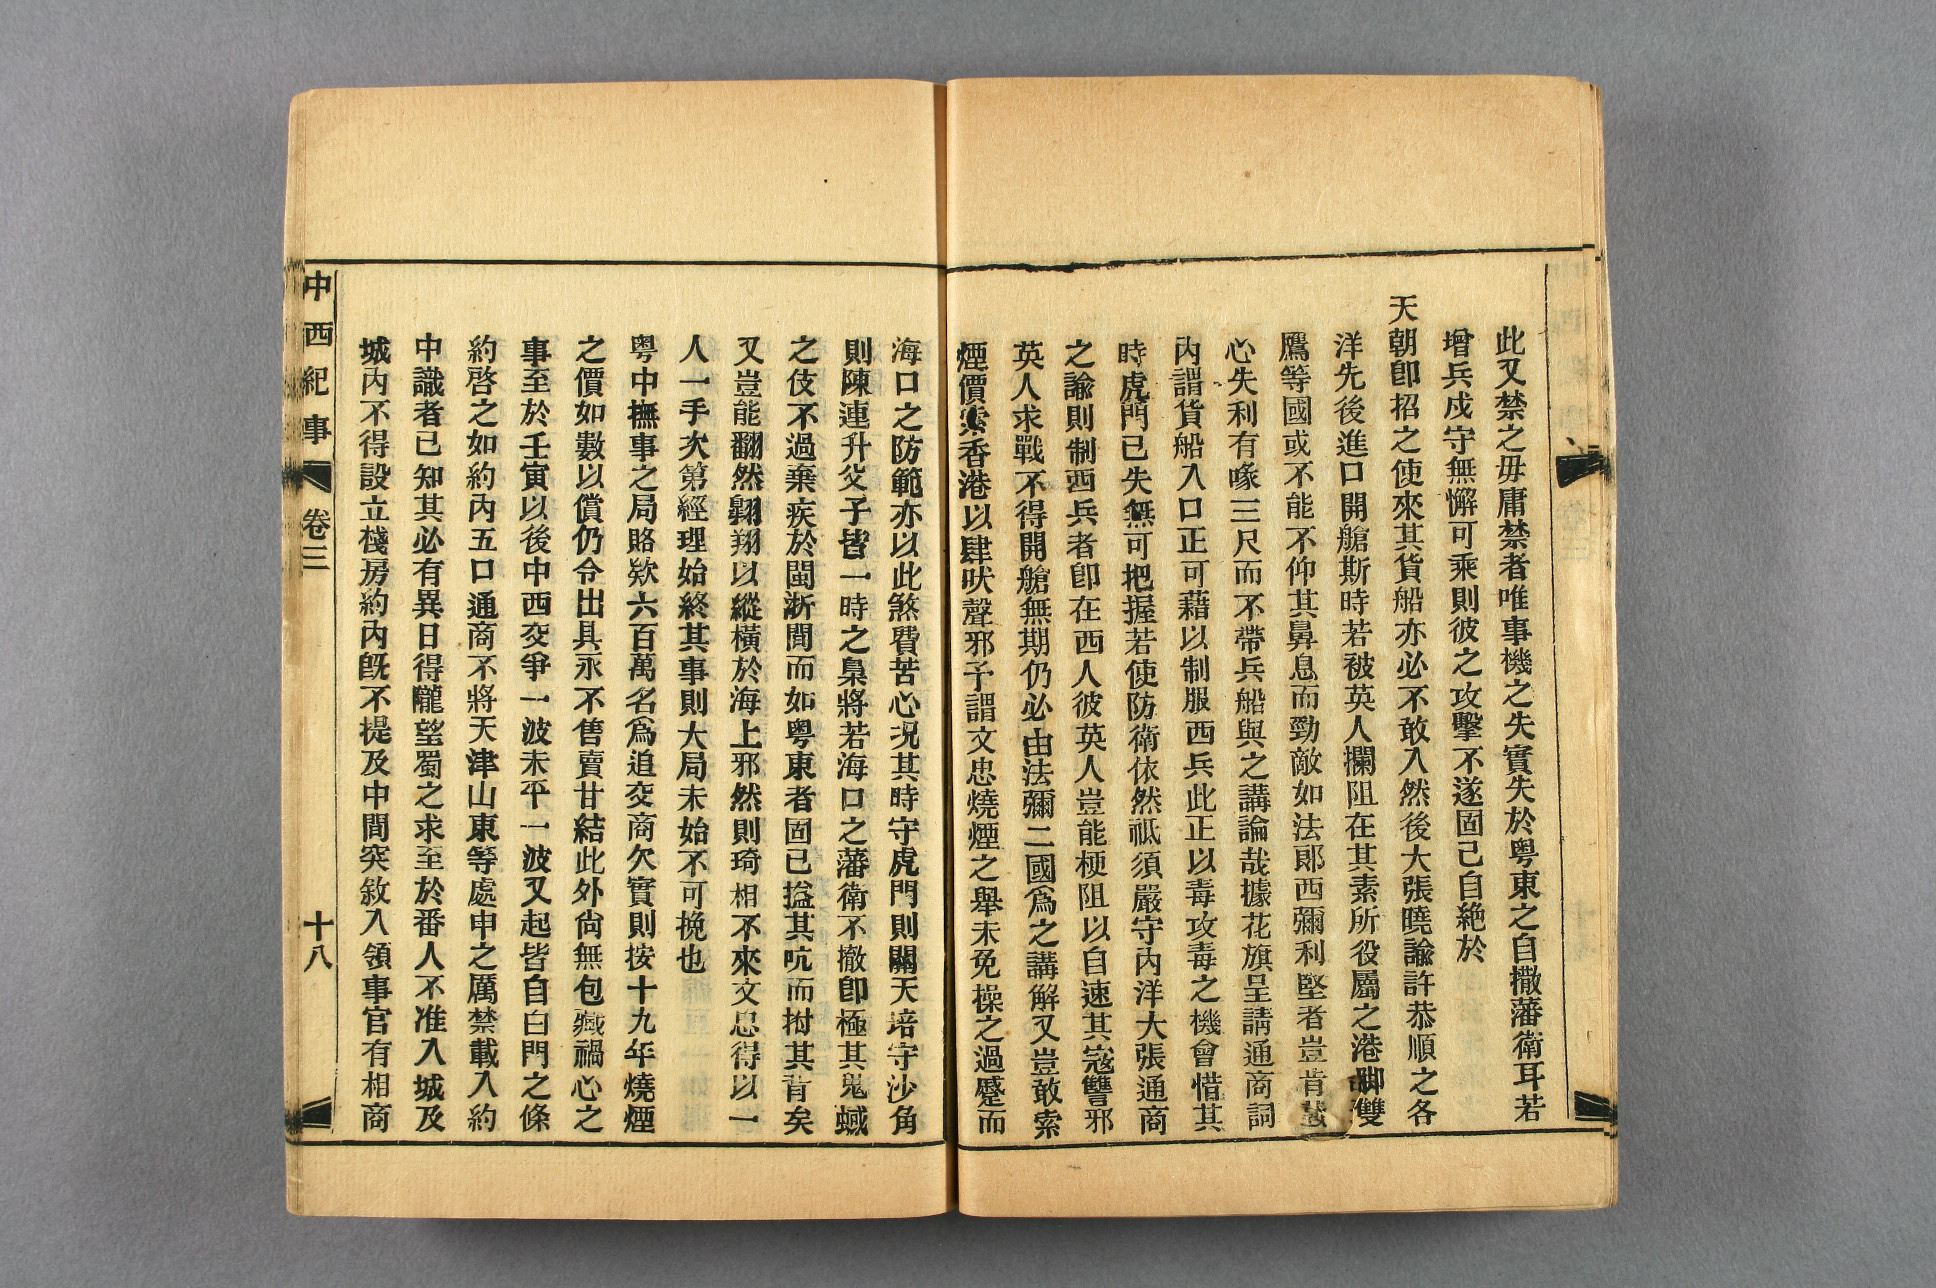 此又禁之毋庸禁者唯事機之失實失於粤東之自撤藩衛耳若
增兵戍守無懈可乘則彼之攻擊不遂固已自絶於
天朝卽招之使來其貨船亦必不敢入然後大張曉諭許恭順之各
洋先後進口開艙斯時若被英人攔阻在其素所役屬之港脚雙
鷹等國或不能不仰其鼻息而勁敵如法郎西彌利堅者豈肯
心失利有喙三尺而不帶兵船與之講論哉據花旗呈請通商詞
内謂貨船入口正可藉以制服西兵此正以毒攻毒之機會惜其
時虎門已失無可把握若使防衛依然祗須嚴守内洋大張通商
之諭則制西兵者卽在西人彼英人豈能梗阻以自速其寇讐邪
英人求戰不得開艙無期仍必由法彌二國爲之講解又豈敢索
煙價索香港以肆吠聲邪予謂文忠燒煙之舉未免操之過蹙而
海口之防範亦以此煞費苦心况其時守虎門則關天培守沙角
則陳連升父子皆一時之梟將若海口之藩衛不撤卽極其鬼蜮
之伎不過棄疾於閩浙間而如粤東者固已搤其吭而拊其背矣
又豈能翻然翺翔以縱橫於海上邪然則琦相不來文忠得以一
人一手次第經理始終其事則大局未始不可挽也
粤中撫事之局賂欵六百萬名爲追交商欠實則按十九年燒煙
之價如數以償仍令出具永不售賣甘結此外尙無包藏禍心之
事至於壬寅以後中西交爭一波未平一波又起皆自白門之條
約啓之如約内五口通商不將天津山東等處申之厲禁載入約
中識者已知其必有異日得隴望蜀之求至於番人不准入城及
城内不得設立棧房約内旣不提及中間突敘入領事官有相商
中西紀事 卷三 十八